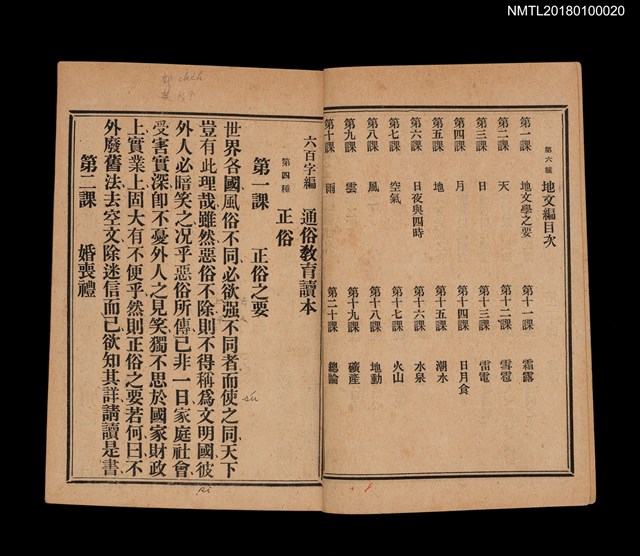 NMTL20180100020
第六種 地文編目次
第一課 地文學之要
第二課 天
第三課 日
第四課 月
第五課 地
第六課 日夜與四時
第七課 空氣
第八課 風
第九課 雲
第十課 雨
第十一課 霜露
第十二課 雪雹
第十三課 雷電
第十四課 日月食
第十五課 潮水
第十六課 水泉
第十七課 火山
第十八課 地動
第十九課 礦產
第二十課 總論
六百字編 通俗教育讀本
第四種 正俗
第一課 正俗之要
世界各國風俗不同必欲强不同者而使之同天下
豈有此理哉雖然惡俗不除則不得稱爲文明國彼
外人必暗笑之况乎惡俗所傳已非一日家庭社會
受害實深卽不憂外人之見笑獨不思於國家財政
上實業上固大有不便乎然則正俗之要若何曰不
外廢舊法去空文除迷信而已欲知其詳請讀是書
第二課 婚喪禮